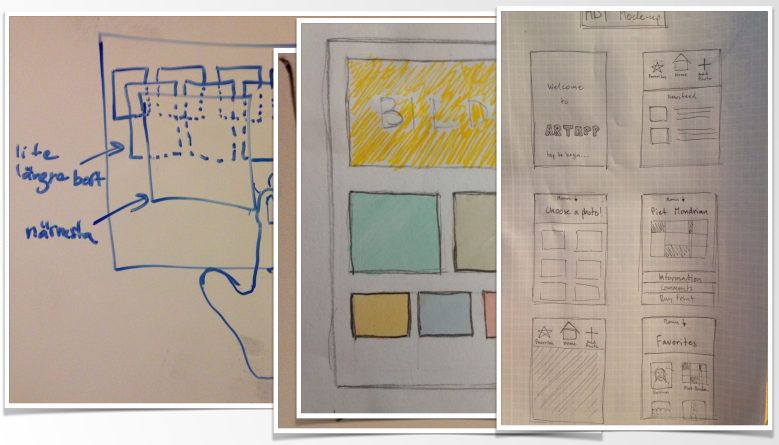 lite
längre bort
närmsta
BILD
MDI Mock-up
Welcome
to
ARTAPP
tap to begin...
Favorites Home Add Photo
Newsfeed
Menu
Choose a photo!
Menu
Piet Mondrian
Information
Comments
Buy Print
Favorites Home Add Photo
Menu
Favorites